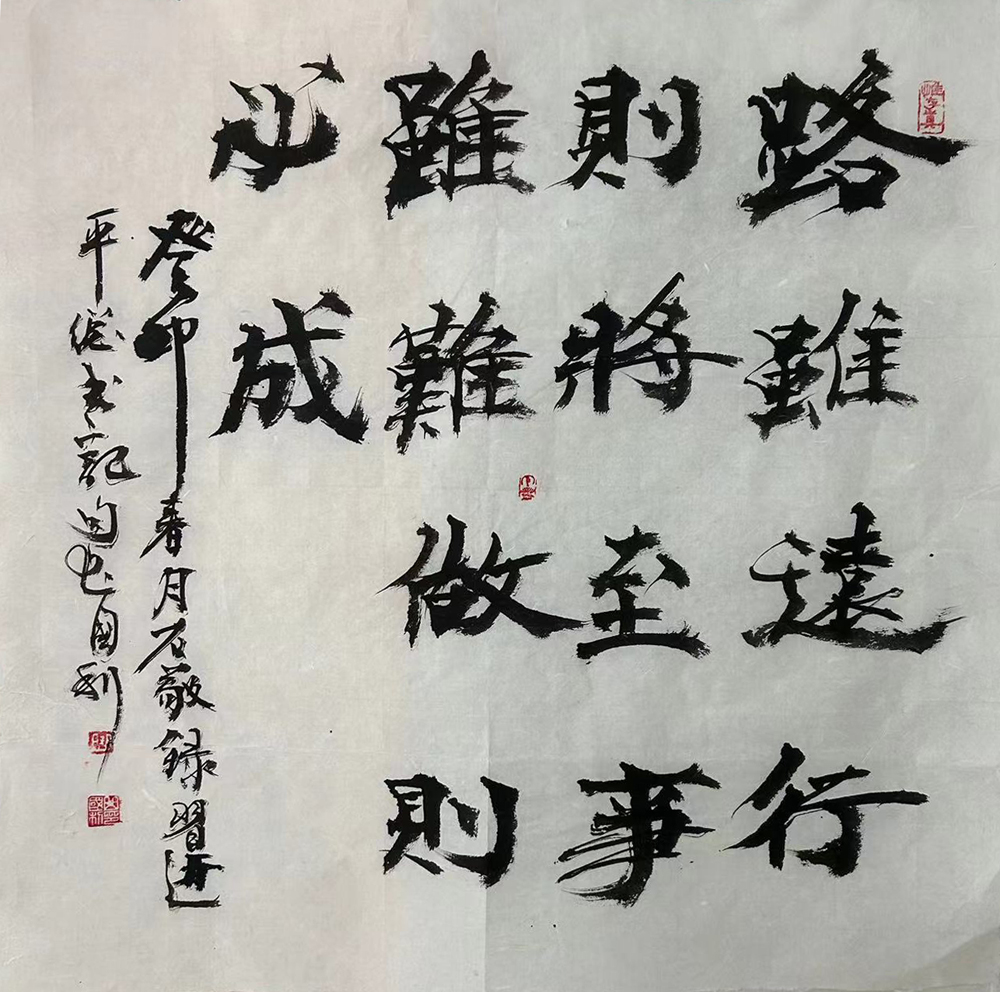 路雖遠行
則將至事
雖難做則
必成
癸卯春月石敬録習近
平總书記句也國利